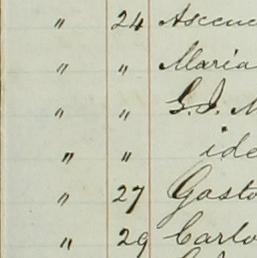 " 24 Ascen
" " Maria
" " G. J. M
" " ide
" 27 Gasto
" 29 Carlo